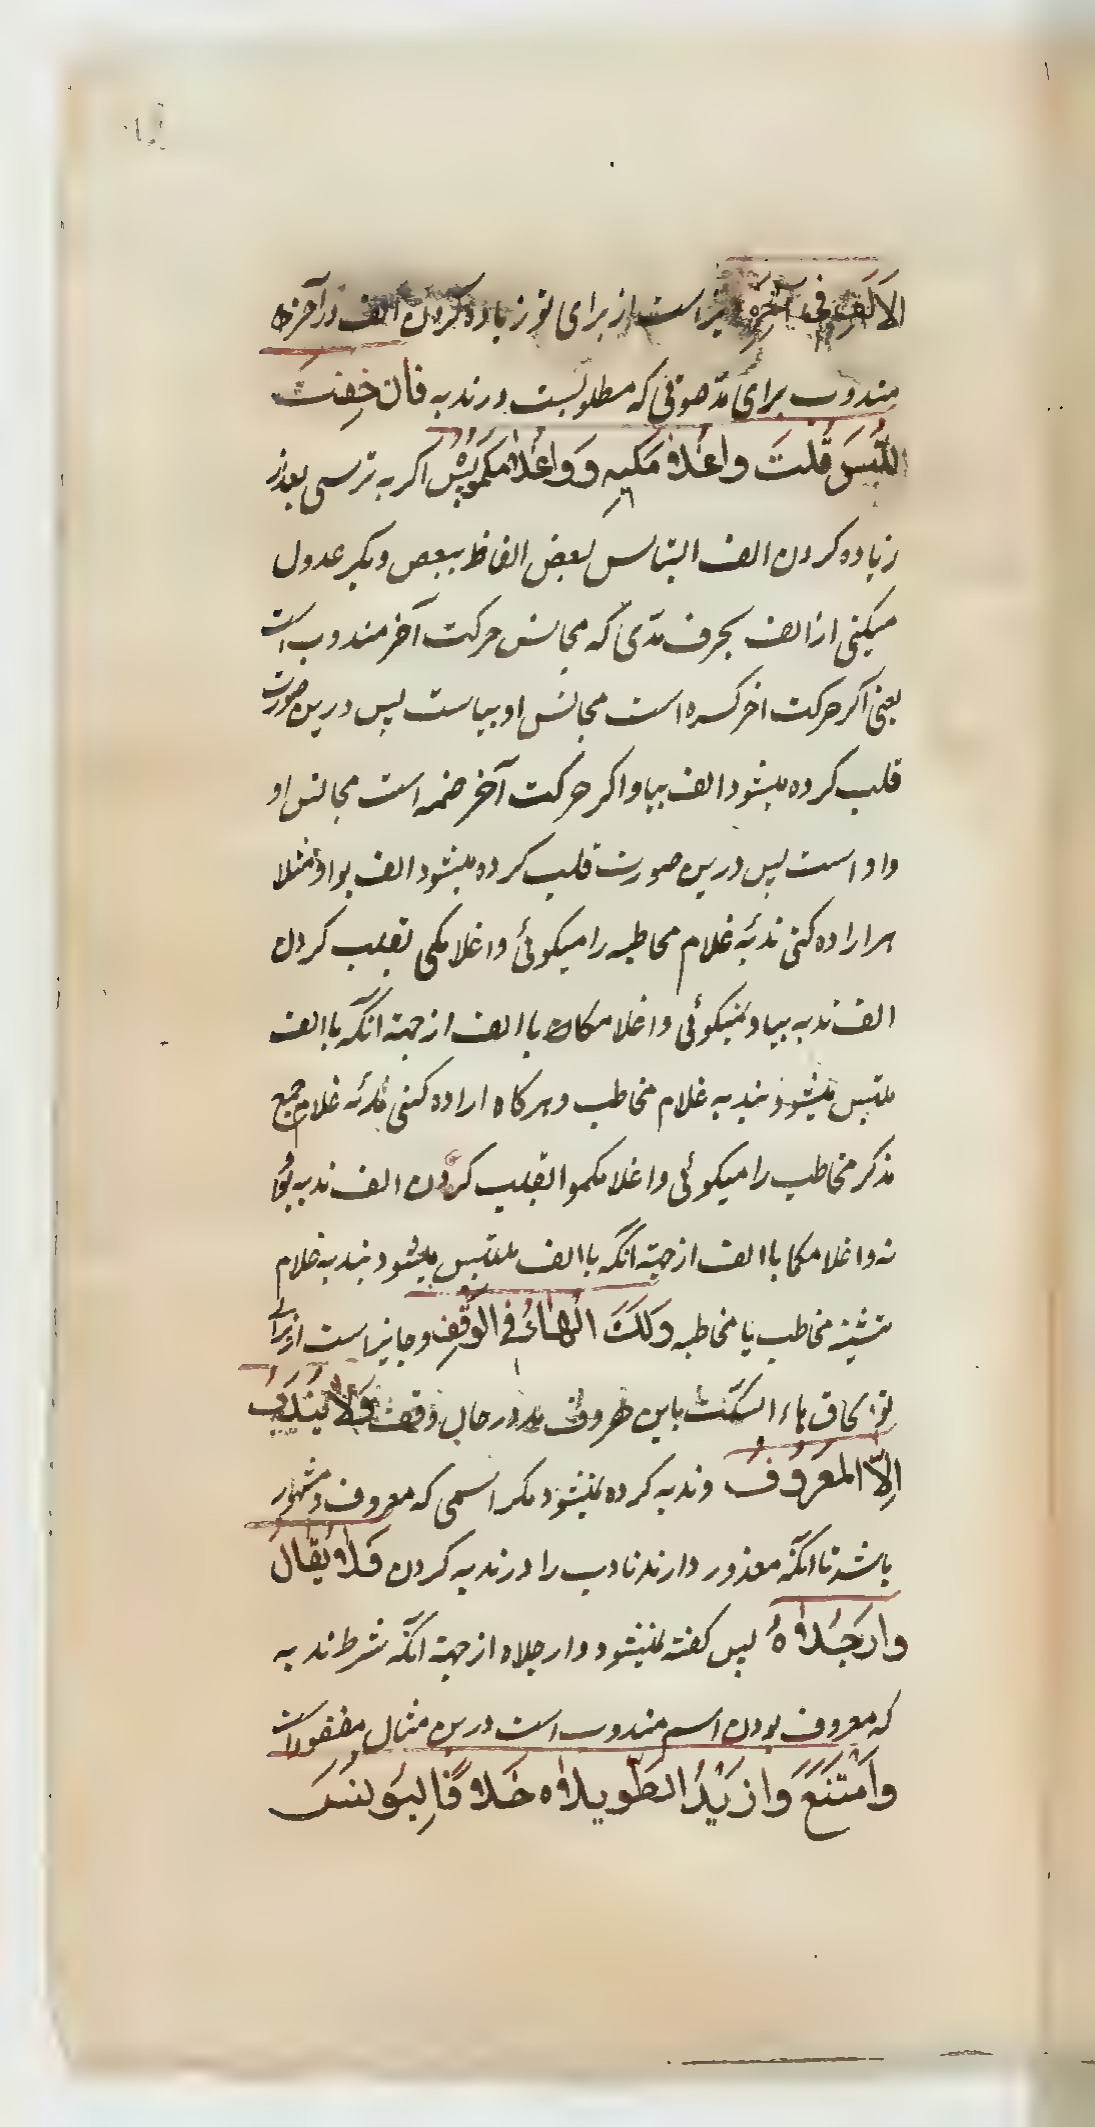 الاَلِفُ فی آخِرِهِ جایز است از برای تو زیاده کردن الف در آخر
مندوب برای مدّ صوتی که مطلوبست در ندبه فاِن خِفتَ
اللَّبسَ قُلتَ واغُلامَکیهِ وَ واغُلامَکُموُه پس اکر به ترسی بعد از
زیاده کردن الف التباس بعض الفاظ ببعض دیکر عدول
میکنی از الف بحرف مدّی که مجانس حرکت آخر مندوب است
یعنی اکر حرکت اخر کسره است مجانس او بیاست پس درین صورت
قلب کرده میشود الف بیا و اکر حرکت آخر ضمه است مجانس او
واو است پس درین صورت قلب کرده میشود الف بواو مثلا
هر اراده کنی ندبهٔ غلام مخاطبه را میکوئی واغلامکی بقلب کردن
الف ندبه بیا و نمیکوئی واغلامکاه با الف از جهته انکه با الف
ملتبس میشود بندبه غلام مخاطب و هرکاه اراده کنی ندبهٔ غلام جمع
مذکر مخاطب را میکوئی واغلامکموا بقلب کردن الف ندبه بواو
نه واغلامکما با الف از جهته انکه با الف ملتبس میشود بندبه غلام
تثنیه مخاطب یا مخاطبه وَلَکَ الهاءُ فی الوَقفِ و جایز است از برای
تو الحاق هاء السکت باین حروف مد در حال وقف وَلا یُندَبُ
اِلاّ المَعروُفُ و ندبه کرده نمیشود مکر اسمی که معروف و مشهور
باشد تا انکه معذور دارند نادب را در ندبه کردن فَلا یُقالُ
وارَجُلاهُ پس کفته نمیشود وارجلاه از جهته انکه شرط ندبه
که معروف بودن اسم مندوب است درین مثال مفقود است
وَامتَنَعَ وازَیدُ الطَّویلاه خِلافًا لِیُونُسَ